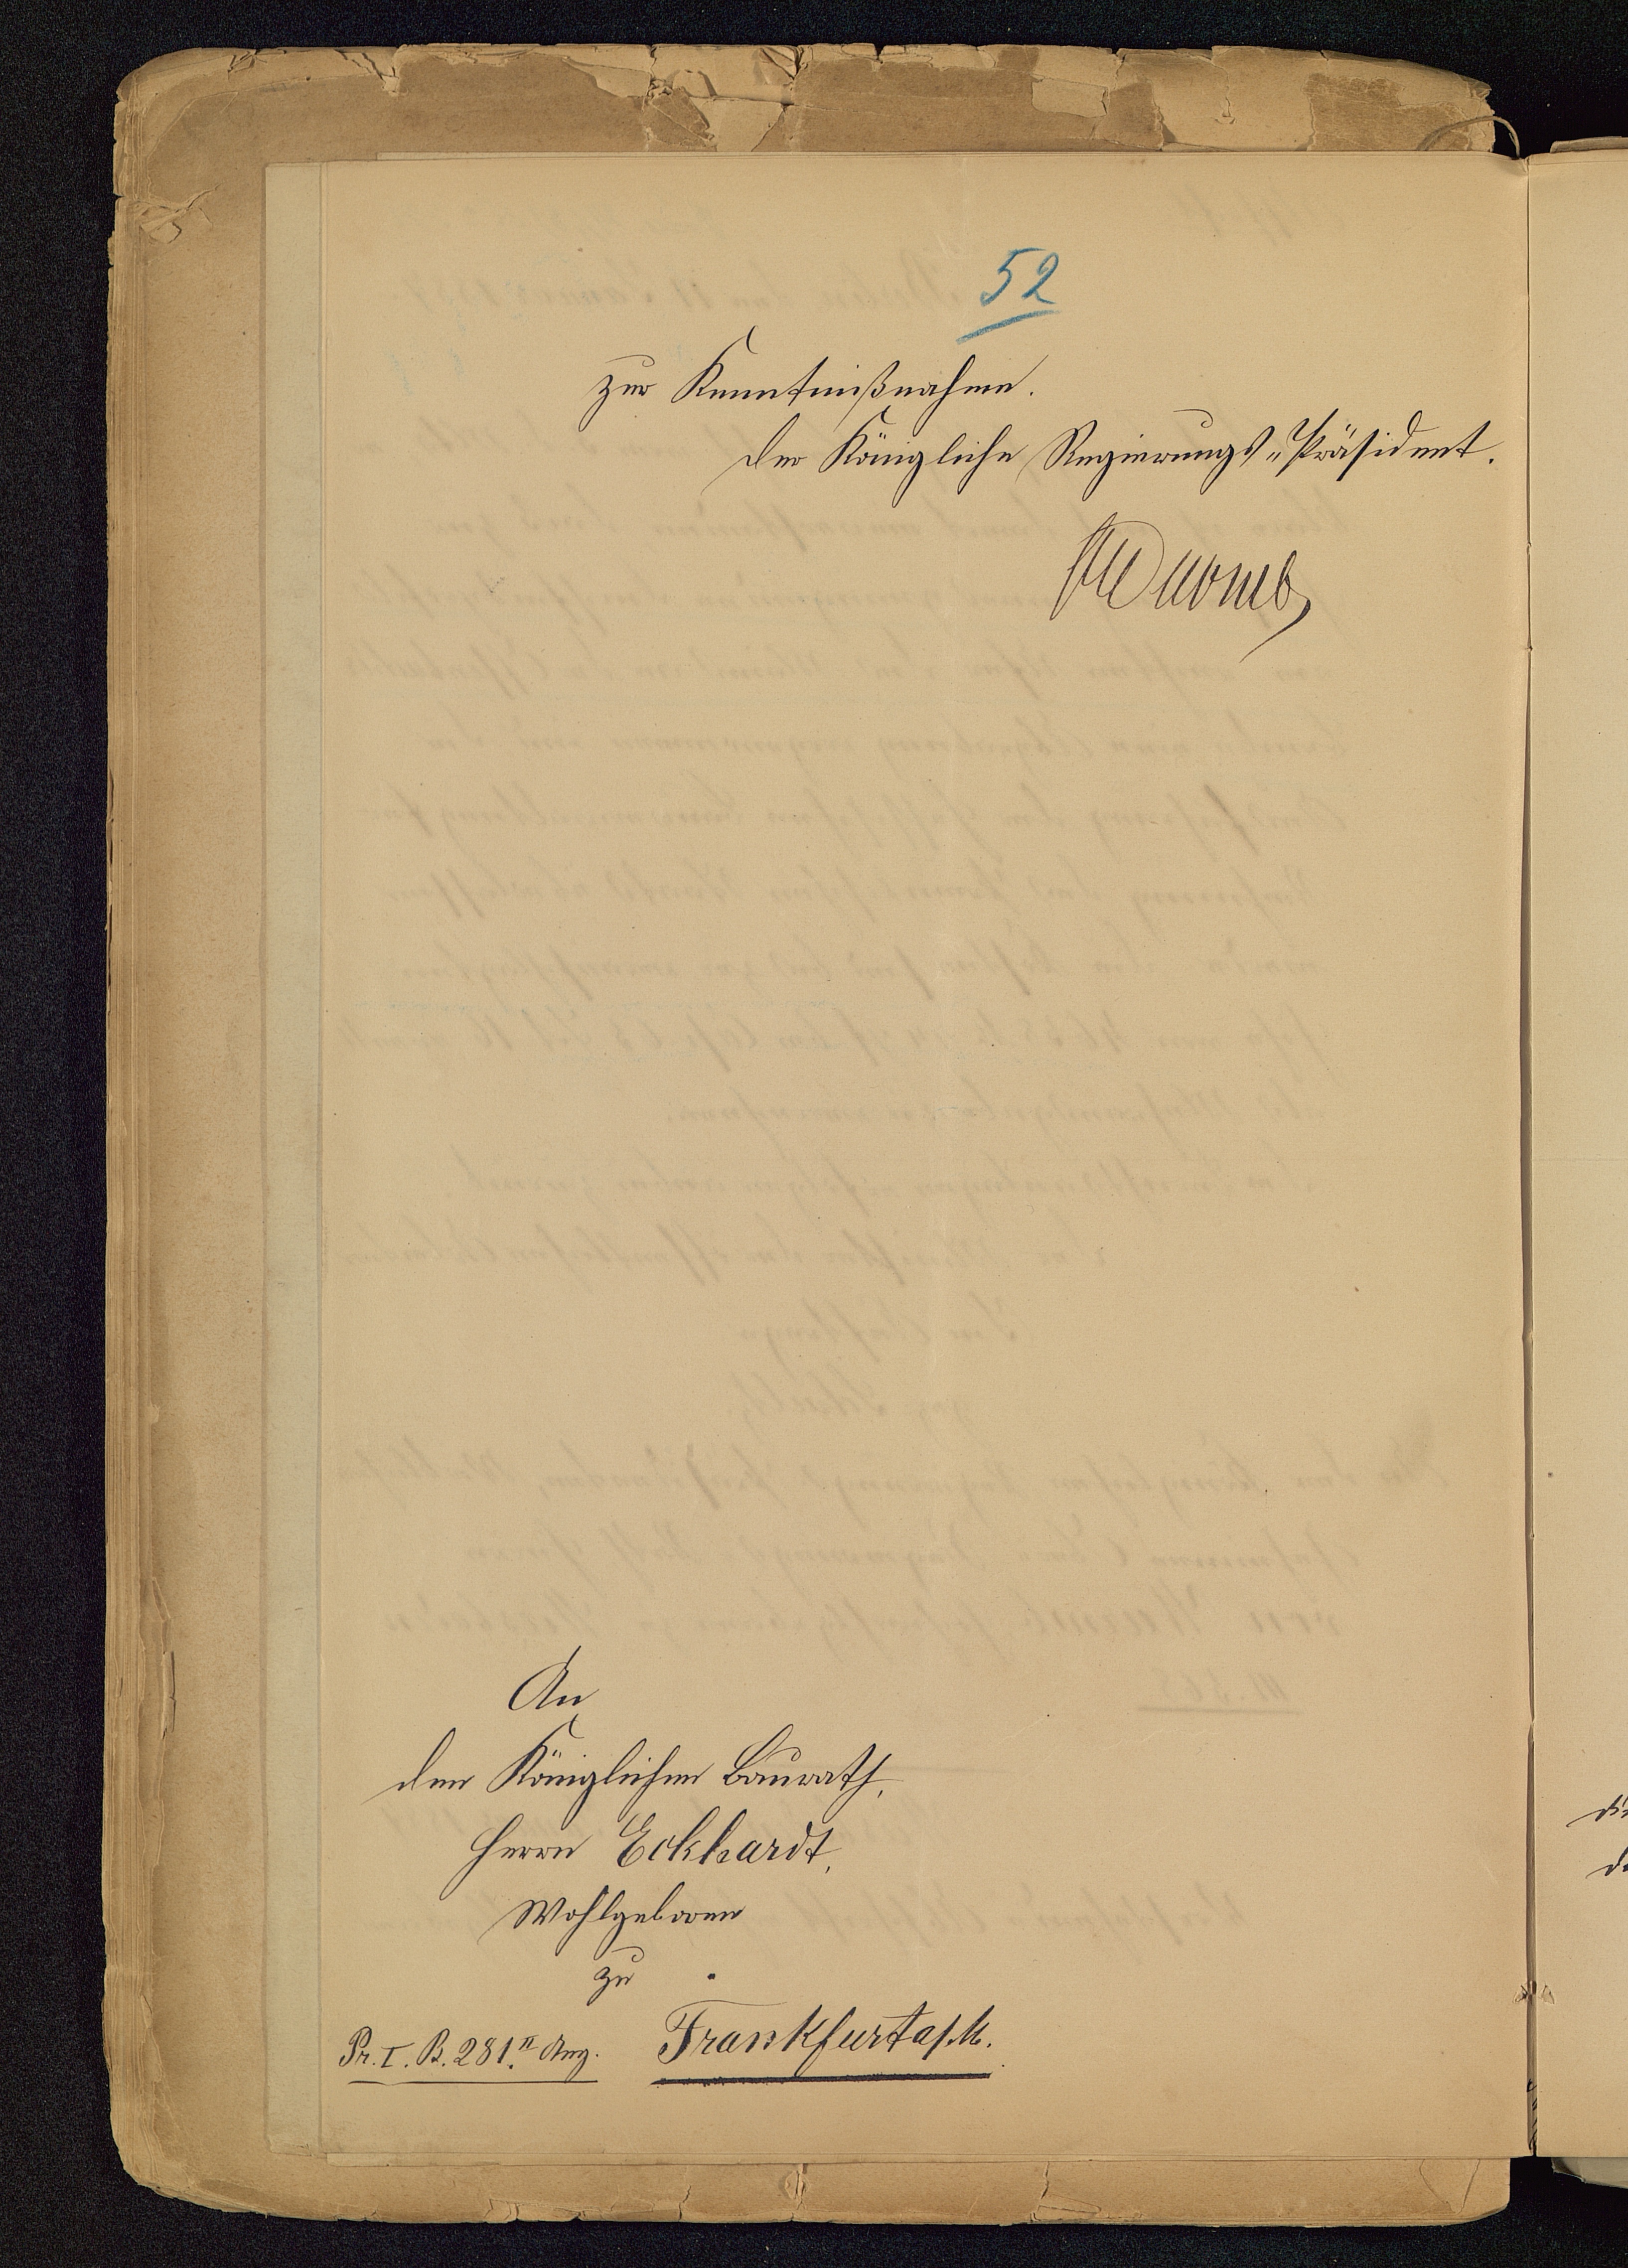 52
zur Kenntnißnahme.
Der Königliche Regierungs-Präsident.
An
den Königlichen Baurath,
Herrn Eckhardt,
Wohlgeboren
zu
Frankfurt a/M.
Pr. I. B. 281. II Ang.